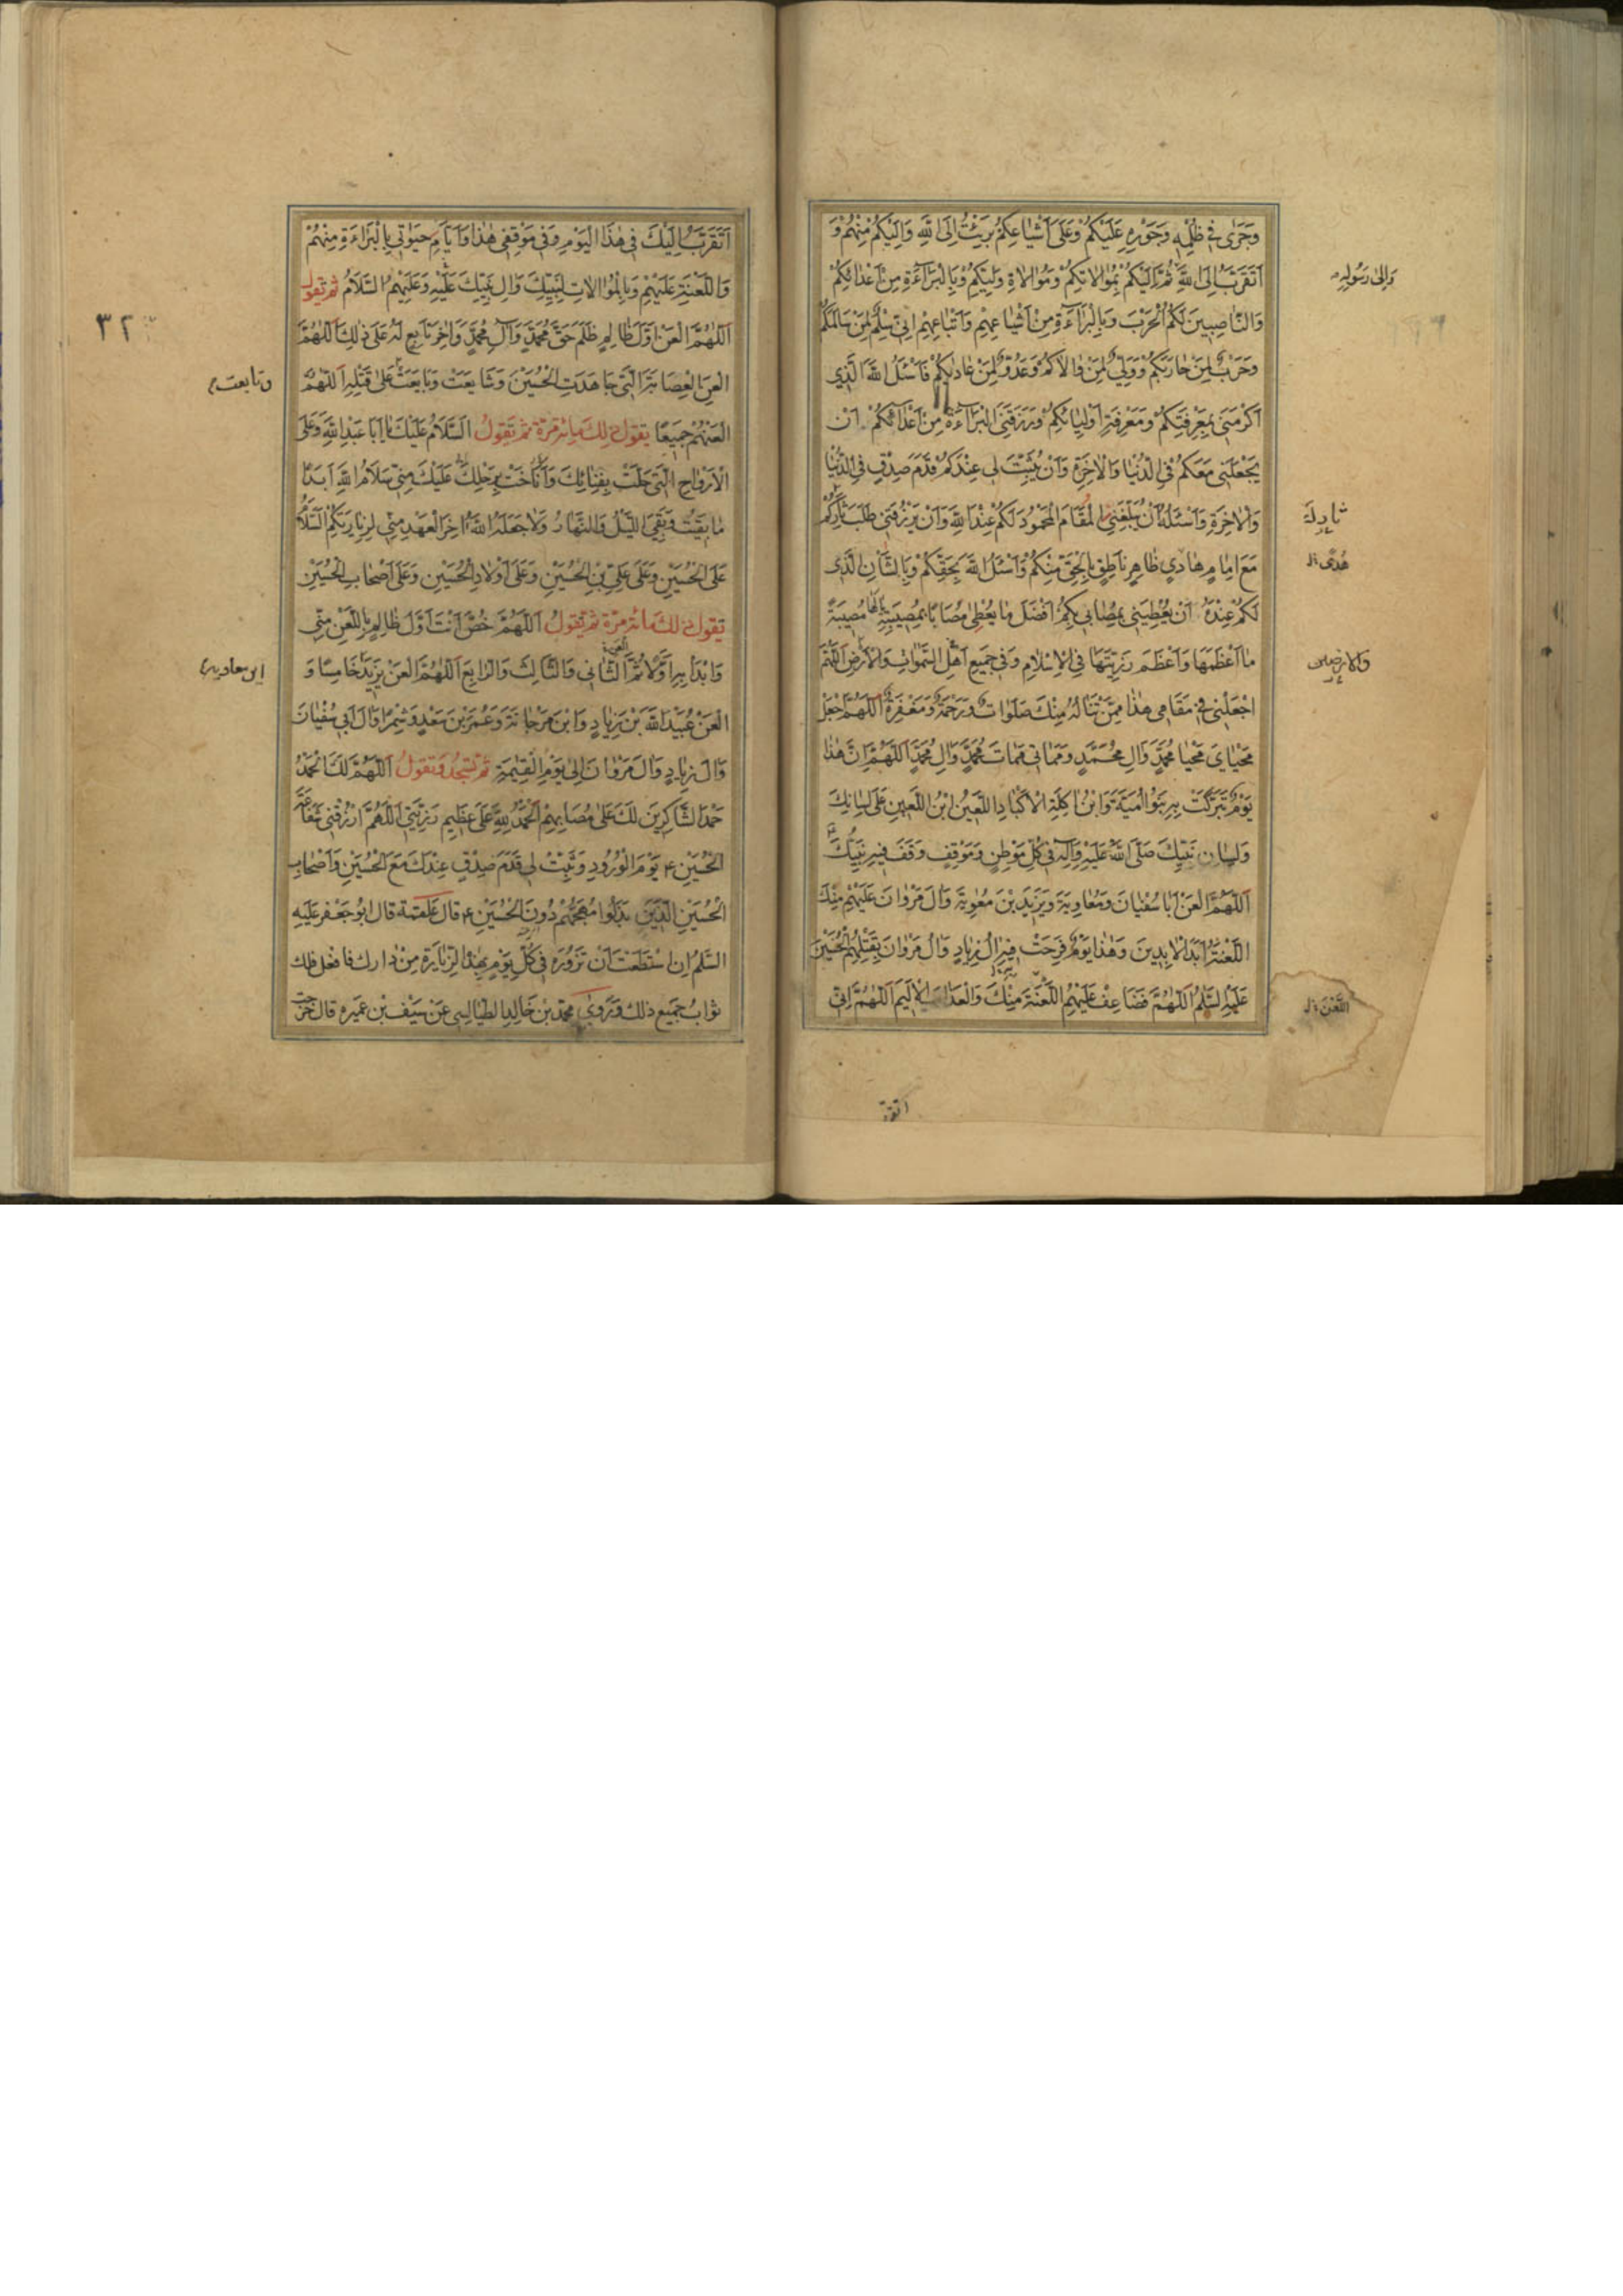 وَجَرىٰ فِي ظُلْمِهِ وَجَوْرِهِ عَلَيْكُمْ وَعَلىٰ اَشْيٰاعِكُمْ بَرِئْتُ اِلَى اللّٰهِ وَاِلَيْكُمْ مِنْهُمْ وَ
اَتَقَرَّبُ اِلَى اللّٰهِ ثُمَّ اِلَيْكُمْ بِمُوٰالاتِكُمْ وَمُوٰالاةِ وَلِيِّكُمْ وَبِالْبَرٰاءَةِ مِنْ اَعْدٰائِكُمْ
وَاِلىٰ رَسُولِهِ
وَالنّٰاصِبِينَ لَكُمُ الْحَرْبَ وَبِالْبَرٰاءَةِ مِنْ اَشْيٰاعِهِمْ وَاَتْبٰاعِهِمْ اِنّي سِلْمٌ لِمَنْ سٰالَمَكُمْ
وَحَرْبٌ لِمَنْ حٰارَبَكُمْ وَوَلِيٌّ لِمَنْ وٰالاكُمْ وَعَدُوٌّ لِمَنْ عٰادٰيكُمْ فَاَسْئَلُ اللّٰهَ الَّذِي
اَكْرَمَنِي بِمَعْرِفَتِكُمْ وَمَعْرِفَةِ اَوْلِيٰائِكُمْ وَرَزَقَنِيَ الْبَرٰاءَةَ مِنْ اَعْدٰائِكُمْ اَنْ
يَجْعَلَنِي مَعَكُمْ فِي الدُّنْيٰا وَالْاٰخِرَةِ وَاَنْ يُثَبِّتَ لِي عِنْدَكُمْ قَدَمَ صِدْقٍ فِي الدُّنْيٰا
وَالْاٰخِرَةِ وَاَسْئَلُهُ اَنْ يُبَلِّغَنِي الْمَقٰامَ الْمَحْمُودَ لَكُمْ عِنْدَ اللّٰهِ وَاَنْ يَرْزُقَنِي طَلَبَ ثٰارِكُمْ
مَعَ اِمٰامٍ هٰادِي ظٰاهِرٍ نٰاطِقٍ بِالْحَقِّ مِنْكُمْ وَاَسْئَلُ اللّٰهَ بِحَقِّكُمْ وَبِالشَّأْنِ الَّذِي
هُدًى
لَكُمْ عِنْدَهُ اَنْ يُعْطِيَنِي بِمُصٰابِي بِكُمْ اَفْضَلَ مٰا يُعْطِي مُصٰابًا بِمُصِيبَتِهِ يٰا لَهٰا مُصِيبَةً
مٰا اَعْظَمَهٰا وَاَعْظَمَ رَزِيَّتَهٰا فِي الْاِسْلامِ وَفِي جَمِيعِ اَهْلِ السَّمٰوٰاتِ وَالْاَرْضِ اَللّٰهُمَّ
اجْعَلْنِي فِي مَقٰامِي هٰذٰا مِمَّنْ تَنٰالُهُ مِنْكَ صَلَوٰاتٌ وَرَحْمَةٌ وَمَغْفِرَةٌ اَللّٰهُمَّ اجْعَلْ
مَحْيٰايَ مَحْيٰا مُحَمَّدٍ وَآلِ مُحَمَّدٍ وَمَمٰاتِي مَمٰاتَ مُحَمَّدٍ وَآلِ مُحَمَّدٍ اَللّٰهُمَّ اِنَّ هٰذٰا
يَوْمٌ تَبَرَّكَتْ بِهِ بَنُو اُمَيَّةَ وَابْنُ اٰكِلَةِ الْاَكْبٰادِ اللَّعِينُ ابْنُ اللَّعِينِ عَلىٰ لِسٰانِكَ
وَلِسٰانِ نَبِيِّكَ صَلَّى اللّٰهُ عَلَيْهِ وَآلِهِ فِي كُلِّ مَوْطِنٍ وَمَوْقِفٍ وَقَفَ فِيهِ نَبِيُّكَ
اَللّٰهُمَّ الْعَنْ اَبٰا سُفْيٰانَ وَمُعٰاوِيَةَ وَيَزِيدَ بْنَ مُعٰوِيَةَ وَآلَ مَرْوٰانَ عَلَيْهِمْ مِنْكَ
اللَّعْنَةُ اَبَدَ الْاٰبِدِينَ وَهٰذٰا يَوْمٌ فَرِحَتْ فِيهِ آلُ زِيٰادٍ وَآلُ مَرْوٰانَ بِقَتْلِهِمُ الْحُسَيْنَ
عَلَيْهِ السَّلٰمُ اَللّٰهُمَّ فَضٰاعِفْ عَلَيْهِمُ اللَّعْنَةَ مِنْكَ وَالْعَذٰابَ الْاَلِيمَ اَللّٰهُمَّ اِنّي
اللَّعْنَ
اتقرّ
اَتَقَرَّبُ اِلَيْكَ فِي هٰذَا الْيَوْمِ وَفِي مَوْقِفِي هٰذٰا وَاَيّٰامِ حَيٰوتِي بِالْبَرٰاءَةِ مِنْهُمْ
وَاللَّعْنَةِ عَلَيْهِمْ وَبِالْمُوٰالاتِ لِنَبِيِّكَ وَآلِ نَبِيِّكَ عَلَيْهِ وَعَلَيْهِمُ السَّلامُ ثم تقول
٣٢
اَللّٰهُمَّ الْعَنْ اَوَّلَ ظٰالِمٍ ظَلَمَ حَقَّ مُحَمَّدٍ وَآلِ مُحَمَّدٍ وَاٰخِرَ تٰابِعٍ لَهُ عَلىٰ ذٰلِكَ اَللّٰهُمَّ
الْعَنِ الْعِصٰابَةَ الَّتِي جٰاهَدَتِ الْحُسَيْنَ وَشٰايَعَتْ وَبٰايَعَتْ عَلىٰ قَتْلِهِ اَللّٰهُمَّ
وتابعت
الْعَنْهُمْ جَمِيعًا يقول ذلك مائة مرّة ثم تقول اَلسَّلامُ عَلَيْكَ يٰا اَبٰا عَبْدِ اللّٰهِ وَعَلَى
الْاَرْوٰاحِ الَّتِي حَلَّتْ بِفِنٰائِكَ وَاَنٰاخَتْ بِرَحْلِكَ عَلَيْكَ مِنّي سَلامُ اللّٰهِ اَبَدًا
مٰا بَقِيتُ وَبَقِيَ اللَّيْلُ وَالنَّهٰارُ وَلا جَعَلَهُ اللّٰهُ اٰخِرَ الْعَهْدِ مِنّي لِزِيٰارَتِكُمْ اَلسَّلامُ
عَلَى الْحُسَيْنِ وَعَلىٰ عَلِيِّ بْنِ الْحُسَيْنِ وَعَلىٰ اَوْلادِ الْحُسَيْنِ وَعَلىٰ اَصْحٰابِ الْحُسَيْنِ
تقول ذلك مائة مرّة ثم تقول اَللّٰهُمَّ خُصَّ اَنْتَ اَوَّلَ ظٰالِمٍ بِاللَّعْنِ مِنّي
وَابْدَأْ بِهِ اَوَّلًا ثُمَّ الثّٰانِي وَالثّٰالِثَ وَالرّٰابِعَ اَللّٰهُمَّ الْعَنْ يَزِيدَ خٰامِسًا وَ
ابن معاوية
الْعَنْ عُبَيْدَ اللّٰهِ بْنَ زِيٰادٍ وَابْنَ مَرْجٰانَةَ وَعُمَرَ بْنَ سَعْدٍ وَشِمْرًا وَآلَ اَبِي سُفْيٰانَ
وَآلَ زِيٰادٍ وَآلَ مَرْوٰانَ اِلىٰ يَوْمِ الْقِيٰمَةِ ثم تسجد وتقول اَللّٰهُمَّ لَكَ الْحَمْدُ
حَمْدَ الشّٰاكِرِينَ لَكَ عَلىٰ مُصٰابِهِمْ اَلْحَمْدُ لِلّٰهِ عَلىٰ عَظِيمِ رَزِيَّتِي اَللّٰهُمَّ ارْزُقْنِي شَفٰاعَةَ
الْحُسَيْنِ ع يَوْمَ الْوُرُودِ وَثَبِّتْ لِي قَدَمَ صِدْقٍ عِنْدَكَ مَعَ الْحُسَيْنِ وَاَصْحٰابِ
الْحُسَيْنِ الَّذِينَ بَذَلُوا مُهَجَهُمْ دُونَ الْحُسَيْنِ ع قال علقمة قال ابو جعفر عليه
السّلم ان استطعت ان تزوره في كلّ يوم بهذا الزيارة من دارك فافعل فلك
ثواب جميع ذلك وروى محمّد بن خالد الطيالسي عن سيف بن عميره قال خرجت